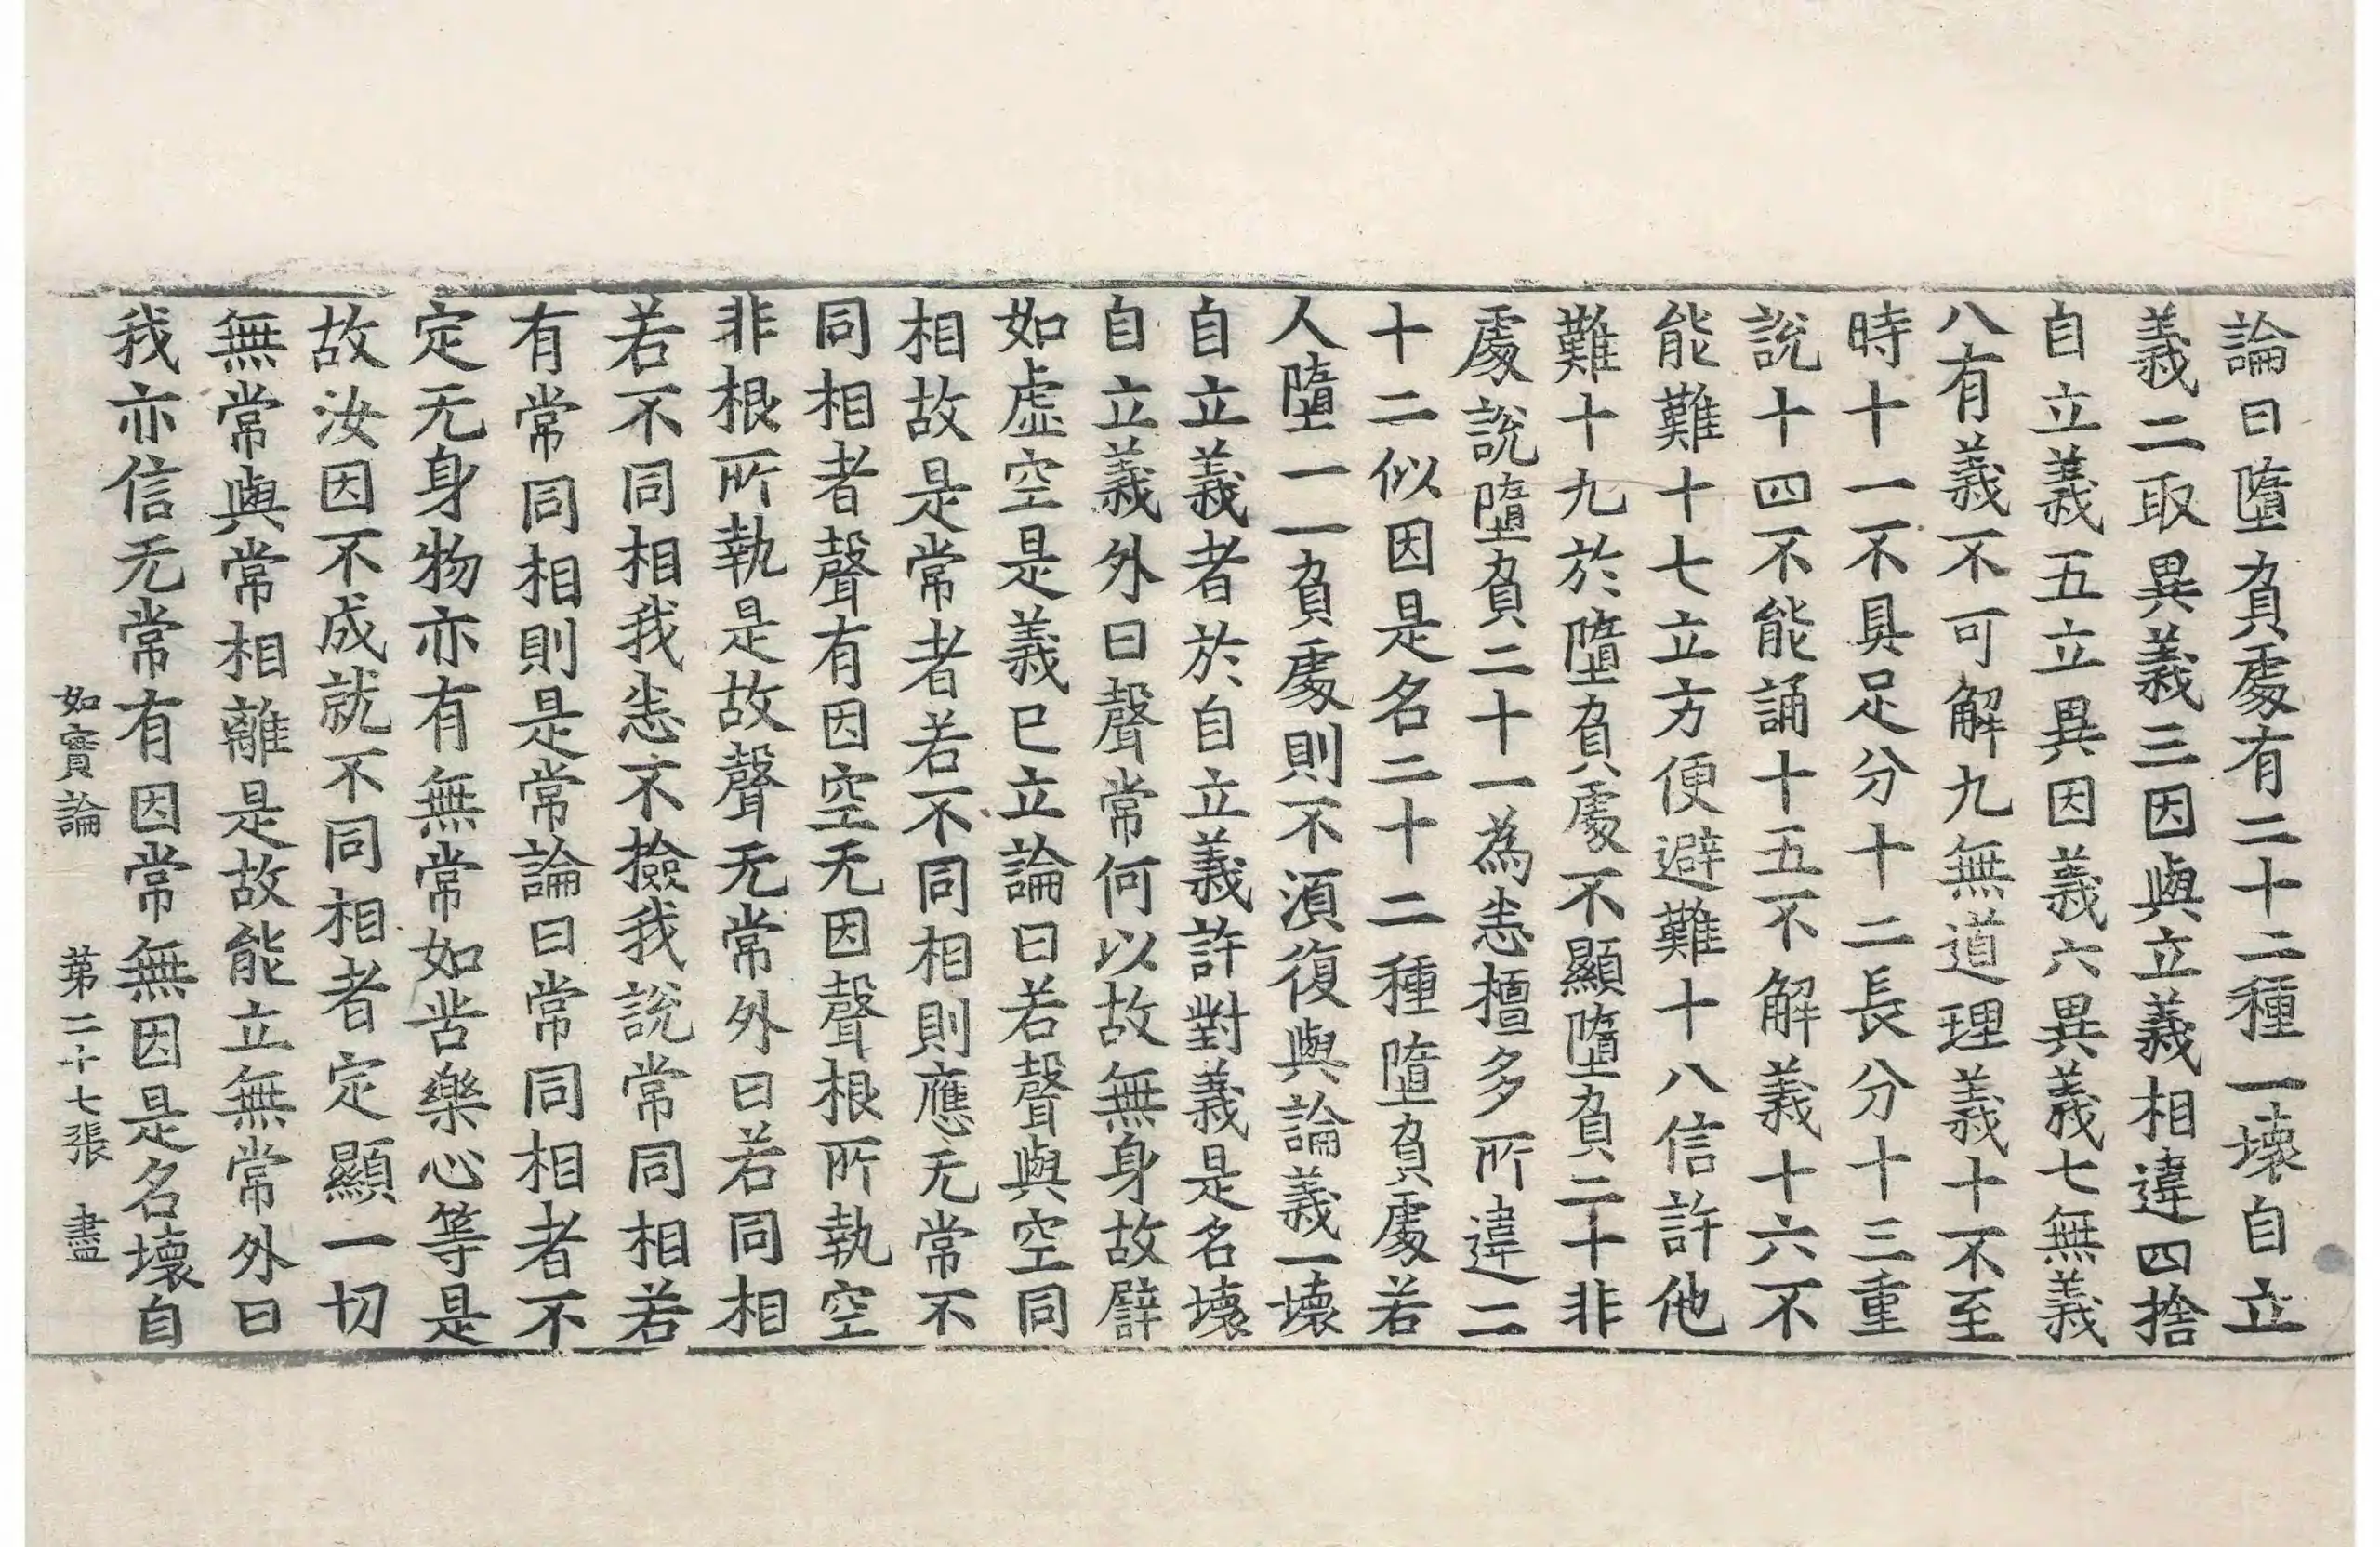 論曰墮負處有二十二種一壞自立
義二取異義三因與立義相違四捨
自立義五立異因義六異義七無義
八有義不可解九無道理義十不至
時十一不具足分十二長分十三重
說十四不能誦十五不解義十六不
能難十七立方便避難十八信許他
難十九於墮負處不顯墮負二十非
處說墮負二十一為恚檀多所違二
十二似因是名二十二種墮負處若
人墮一一負處則不須復與論義一壞
自立義者於自立義許對義是名壞
自立義外曰聲常何以故無身故譬
如虛空是義已立論曰若聲與空同
相故是常者若不同相則應无常不
同相者聲有因空无因聲根所執空
非根所執是故聲无常外曰若同相
若不同相我恚不撿我說常同相若
有常同相則是常論曰常同相者不
定无身物亦有無常如苦樂心等是
故汝因不成就不同相者定顯一切
無常與常相離是故能立無常外曰
我亦信无常有因常無因是名壞自
如實論 第二十七張 盡